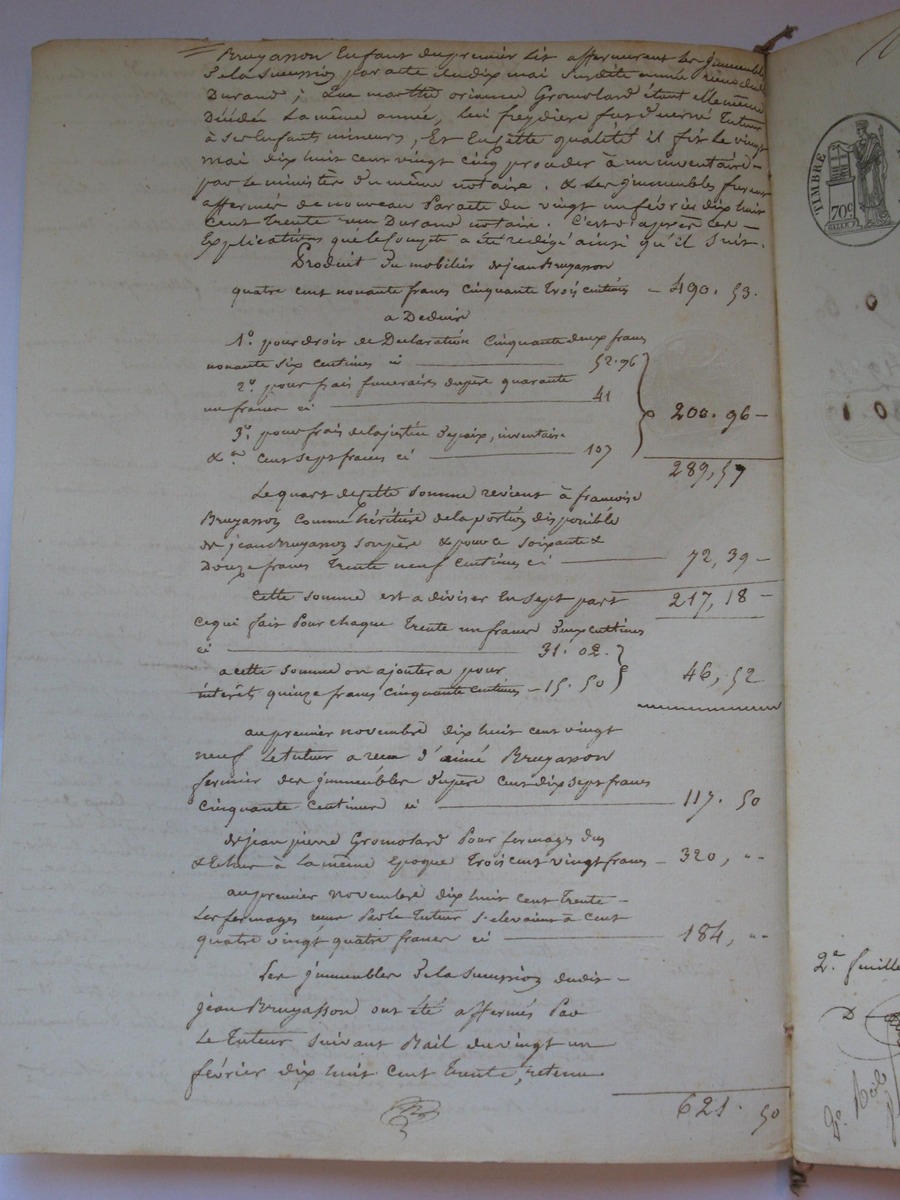 Bruyasson Enfant du premier Lit affermerent les jmmeubles
de la Succession par acte du dix mai susdite année reçu dud.
Durand ; que marthe orianne Gromolard étant elle même
Décédée La même année, leur freydiere fut nommé Tuteur
à ses Enfants mineurs, Et En cette qualété il fit le vingt
mai dix huit cent vingt cinq proceder à un inventaire –
par le ministère du même notaire. & Les jmmeubles furent
affermés de nouveau Par acte du vingt un fevrier dix huit
Cent Trente reçu Durand notaire. C'est d'après ces –
Explications que le Compte a été redigé ainsi qu'il Suit.
Produit du mobilier de jean Bruyasson
quatre cent nonante francs Cinquante Trois centimes – 490. 53.
a Deduire
1.° pour droit de Declaration Cinquante deux francs
nonante Six Centimes ci 52. 96
2.° pour frais funeraires du père quarante
un francs ci 41
200. 96 –
3.° pour frais de la justice de paix, inventaire
& a Cent Sept francs ci 107
289, 57
Le quart de Cette Somme revient à francoise
Bruyasson Comme héritière de la portion disponible
de jean Bruyasson Son père & pour ce Soixante &
Douze francs Trente neuf Centimes ci 72, 39 –
Cette Somme est a diviser En Sept part 217, 18 –
Ce qui fait Pour chaque Trente un francs Deux centimes
ci 31. 02.
46, 52
a cette Somme on ajoutera pour
intérêts quinze francs Cinquante Centimes – 15. 50
au premier novembre dix huit cent vingt
neuf Le tuteur a reçu d'aimé Bruyasson
fermier des jmmeubles du père Cent dix sept francs
Cinquante Centimes ci 117. 50
de jean pierre Gromolard Pour fermages dus
& Echus à La même Epoque Trois Cent vingt francs – 320, "
au premier novembre dix huit cent Trente –
Les fermages reçus Par le Tuteur S'elevaient à Cent
quatre vingt quatre francs ci 184, "
Les jmmeubles de la Succession dudit –
jean Bruyasson ont été affermés Par
Le Tuteur Suivant Bail du vingt un
février dix huit Cent Trente, retenu
621. 50
TIMBRE
70c
2.e feuille